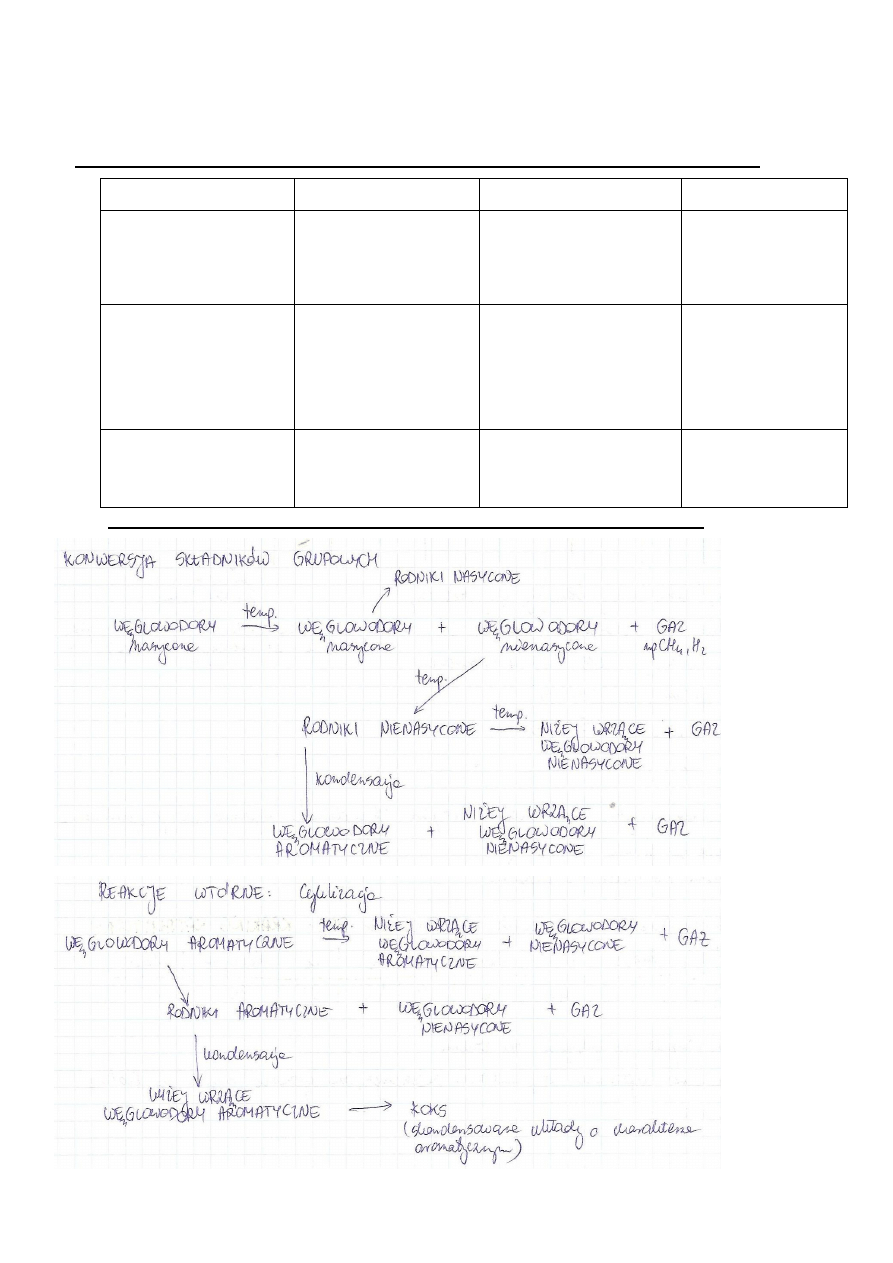 KONWERSJA SKŁADNIKÓW GRUPOWYCH
RODNIKI NASYCONE
WĘGLOWODORY nasycone temp. → WĘGLOWODORY nasycone + WĘGLOWODORY nienasycone + GAZ np CH4, H2
temp.
RODNIKI NIENASYCONE temp. → NIŻEJ WRZĄCE WĘGLOWODORY NIENASYCONE + GAZ
kondensacja
WĘGLOWODORY AROMATYCZNE + NIŻEJ WRZĄCE WĘGLOWODORY NIENASYCONE + GAZ
REAKCJE WTÓRNE: Cyklizacja
WĘGLOWODORY AROMATYCZNE temp. → NIŻEJ WRZĄCE WĘGLOWODORY AROMATYCZNE + WĘGLOWODORY NIENASYCONE + GAZ
RODNIKI AROMATYCZNE + WĘGLOWODORY NIENASYCONE + GAZ
kondensacja
WYŻEJ WRZĄCE
WĘGLOWODORY AROMATYCZNE → KOKS
(skondensowane układy o charakterze
aromatycznym)